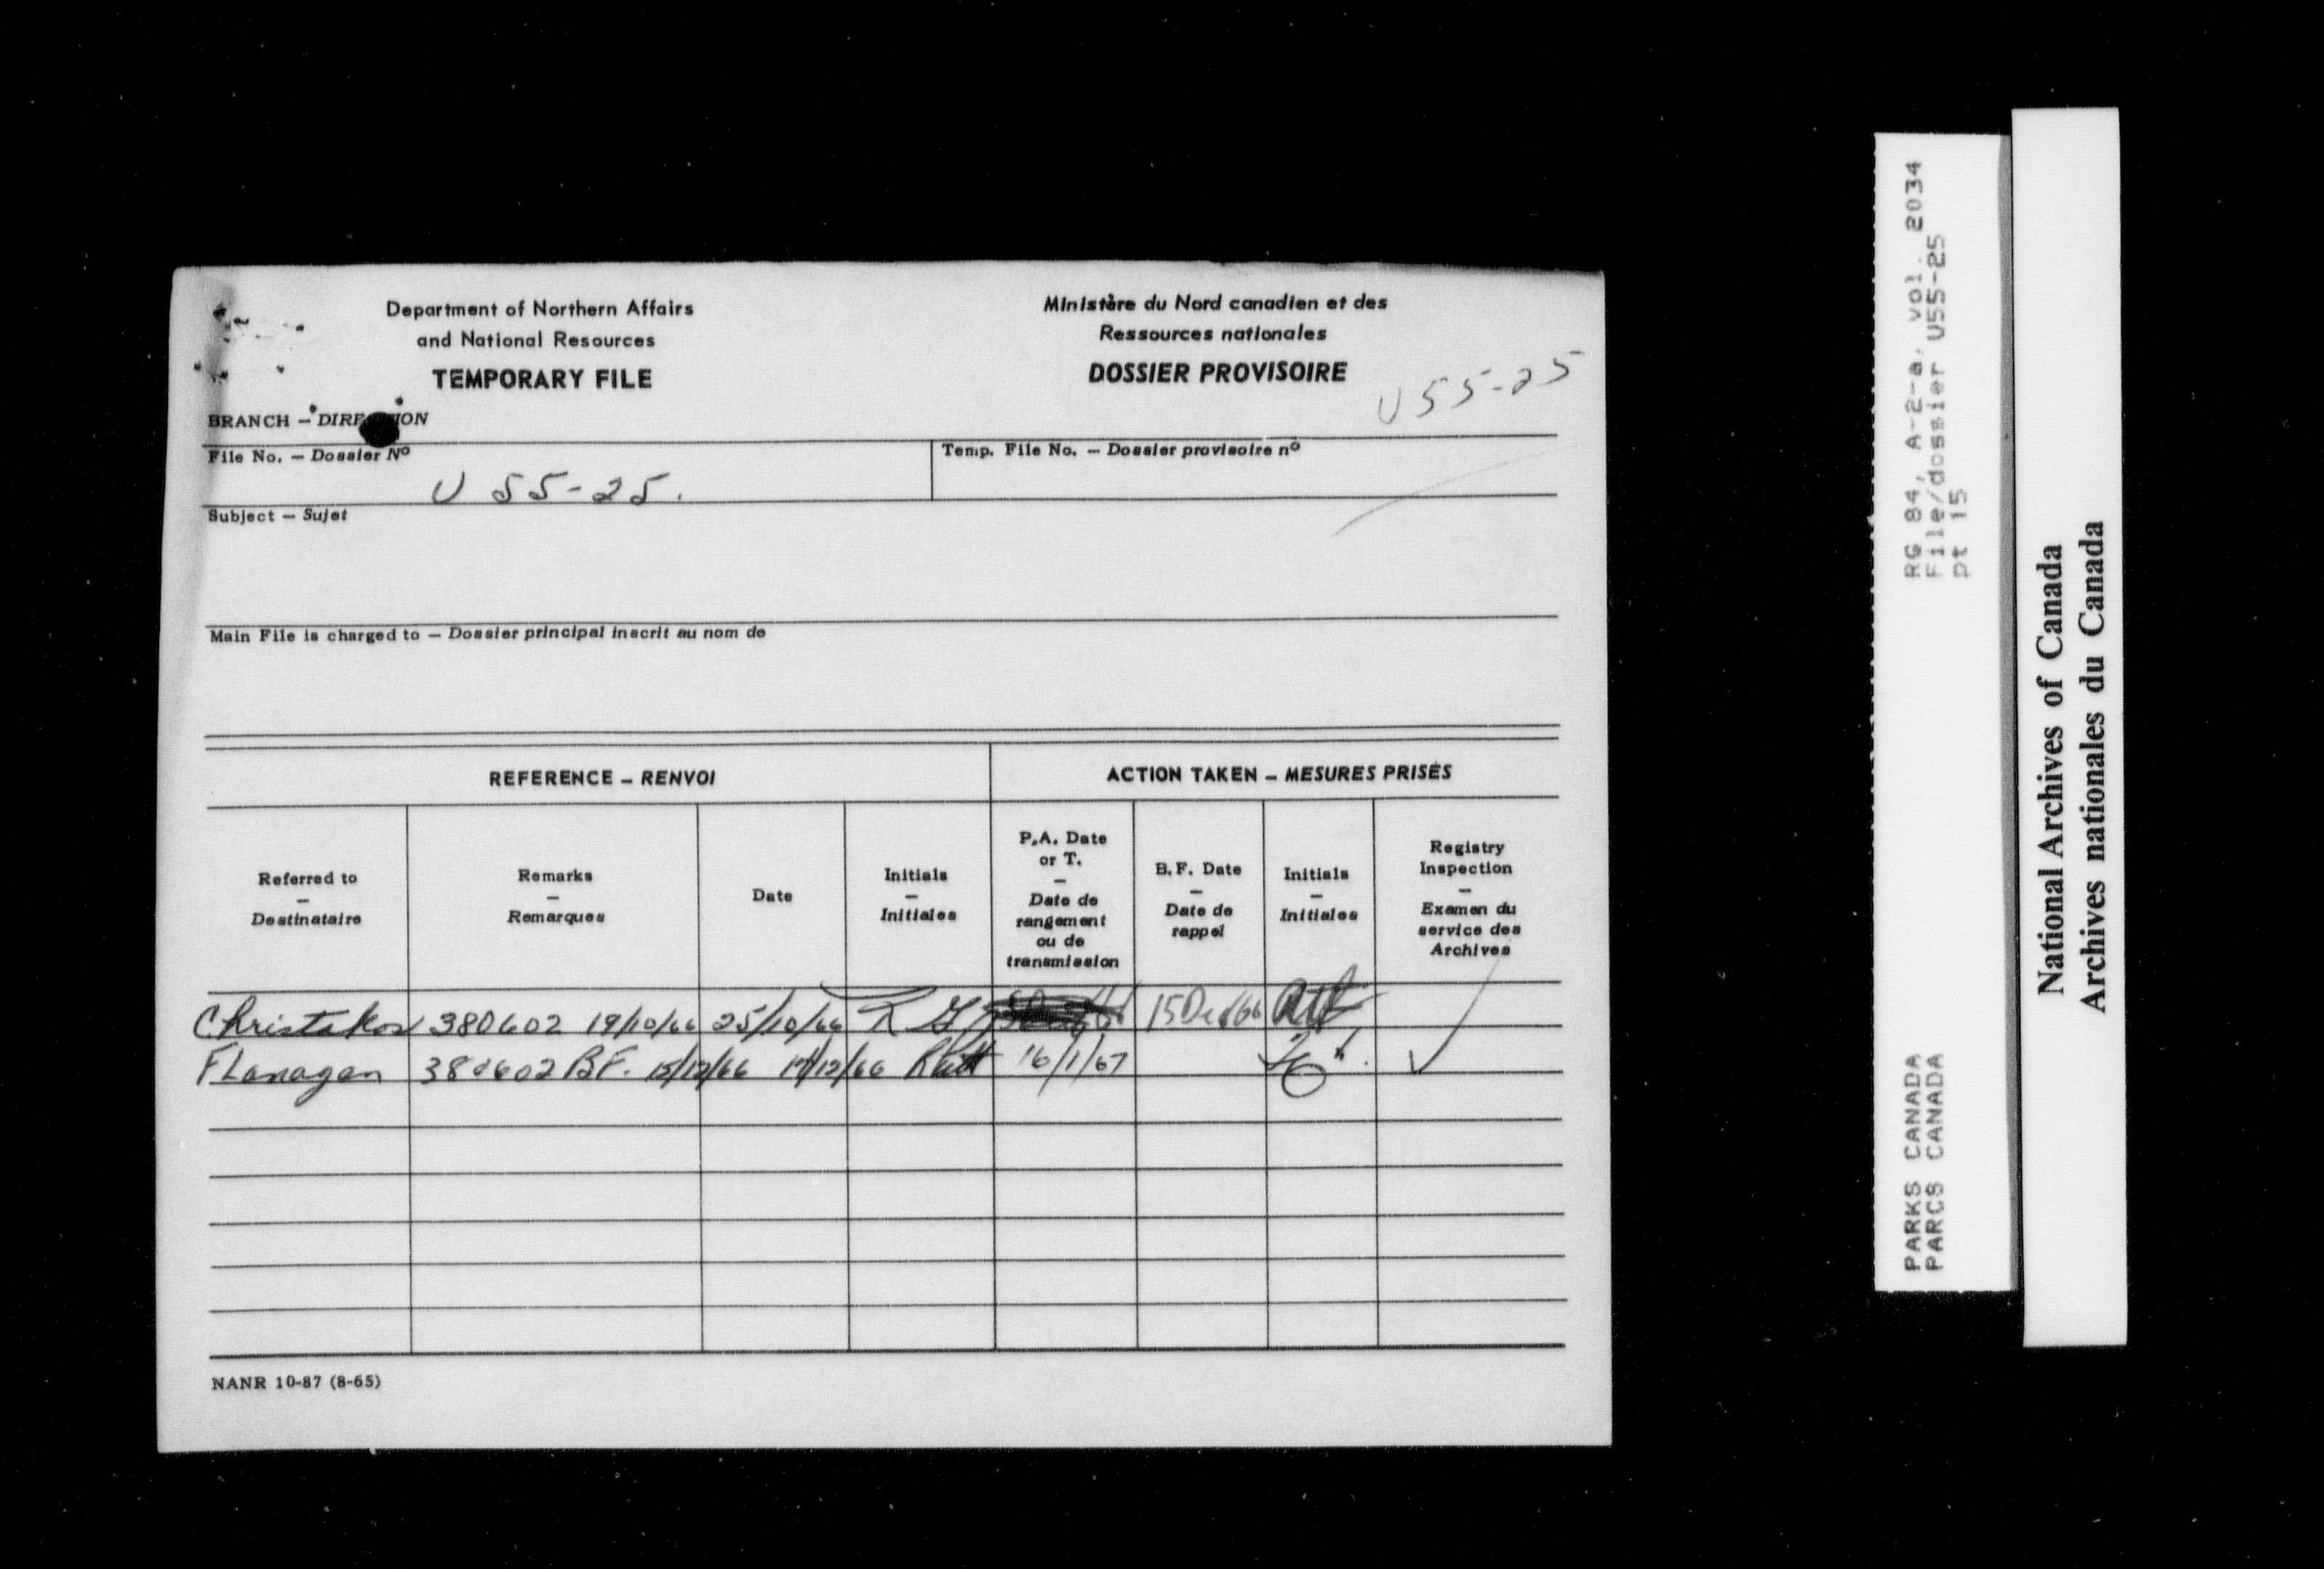 Department of Northern Affairs
and National Resources
TEMPORARY FILE
Ministère du Nord canadien et des
Ressources nationales
DOSSIER PROVISOIRE
U55-25
BRANCH – DIRECTION
File No. – Dossier Nº
U 55-25.
Temp. File No. – Dossier provisoire nº
Subject – Sujet
Main File is charged to – Dossier principal inscrit au nom de
REFERENCE – RENVOI
ACTION TAKEN – MESURES PRISES
Referred to
–
Destinataire
Remarks
–
Remarques
Date
Initials
–
Initiales
P.A. Date
or T.
–
Date de
rangement
ou de
transmission
B.F. Date
–
Date de
rappel
Initials
–
Initiales
Registry
Inspection
–
Examen du
service des
Archives
Christakos 380602 19/10/66 25/10/66 15 Dec/66
Flanagan 380602 BF. 15/12/66 19/12/66 16/1/67
NANR 10-87 (8-65)
RG 84, A-2-a, vol. 2034
File/dossier U55-25
pt 15
PARKS CANADA
PARCS CANADA
National Archives of Canada
Archives nationales du Canada